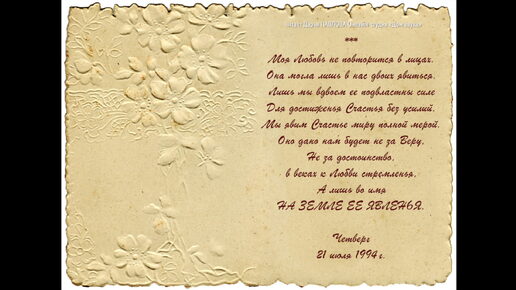 ***
Моя Любовь не повторится в лицах.
Она могла лишь в нас двоих явиться.
Лишь мы вдвоем ее подвластны силе
Для достиженья Счастья без усилий.
Мы явим Счастье миру полной мерой.
Оно дано нам будет не за Веру,
Не за достоинство,
в веках к Любви стремленья,
А лишь во имя
НА ЗЕМЛЕ ЕЕ ЯВЛЕНЬЯ.
Четверг
21 июля 1994 г.